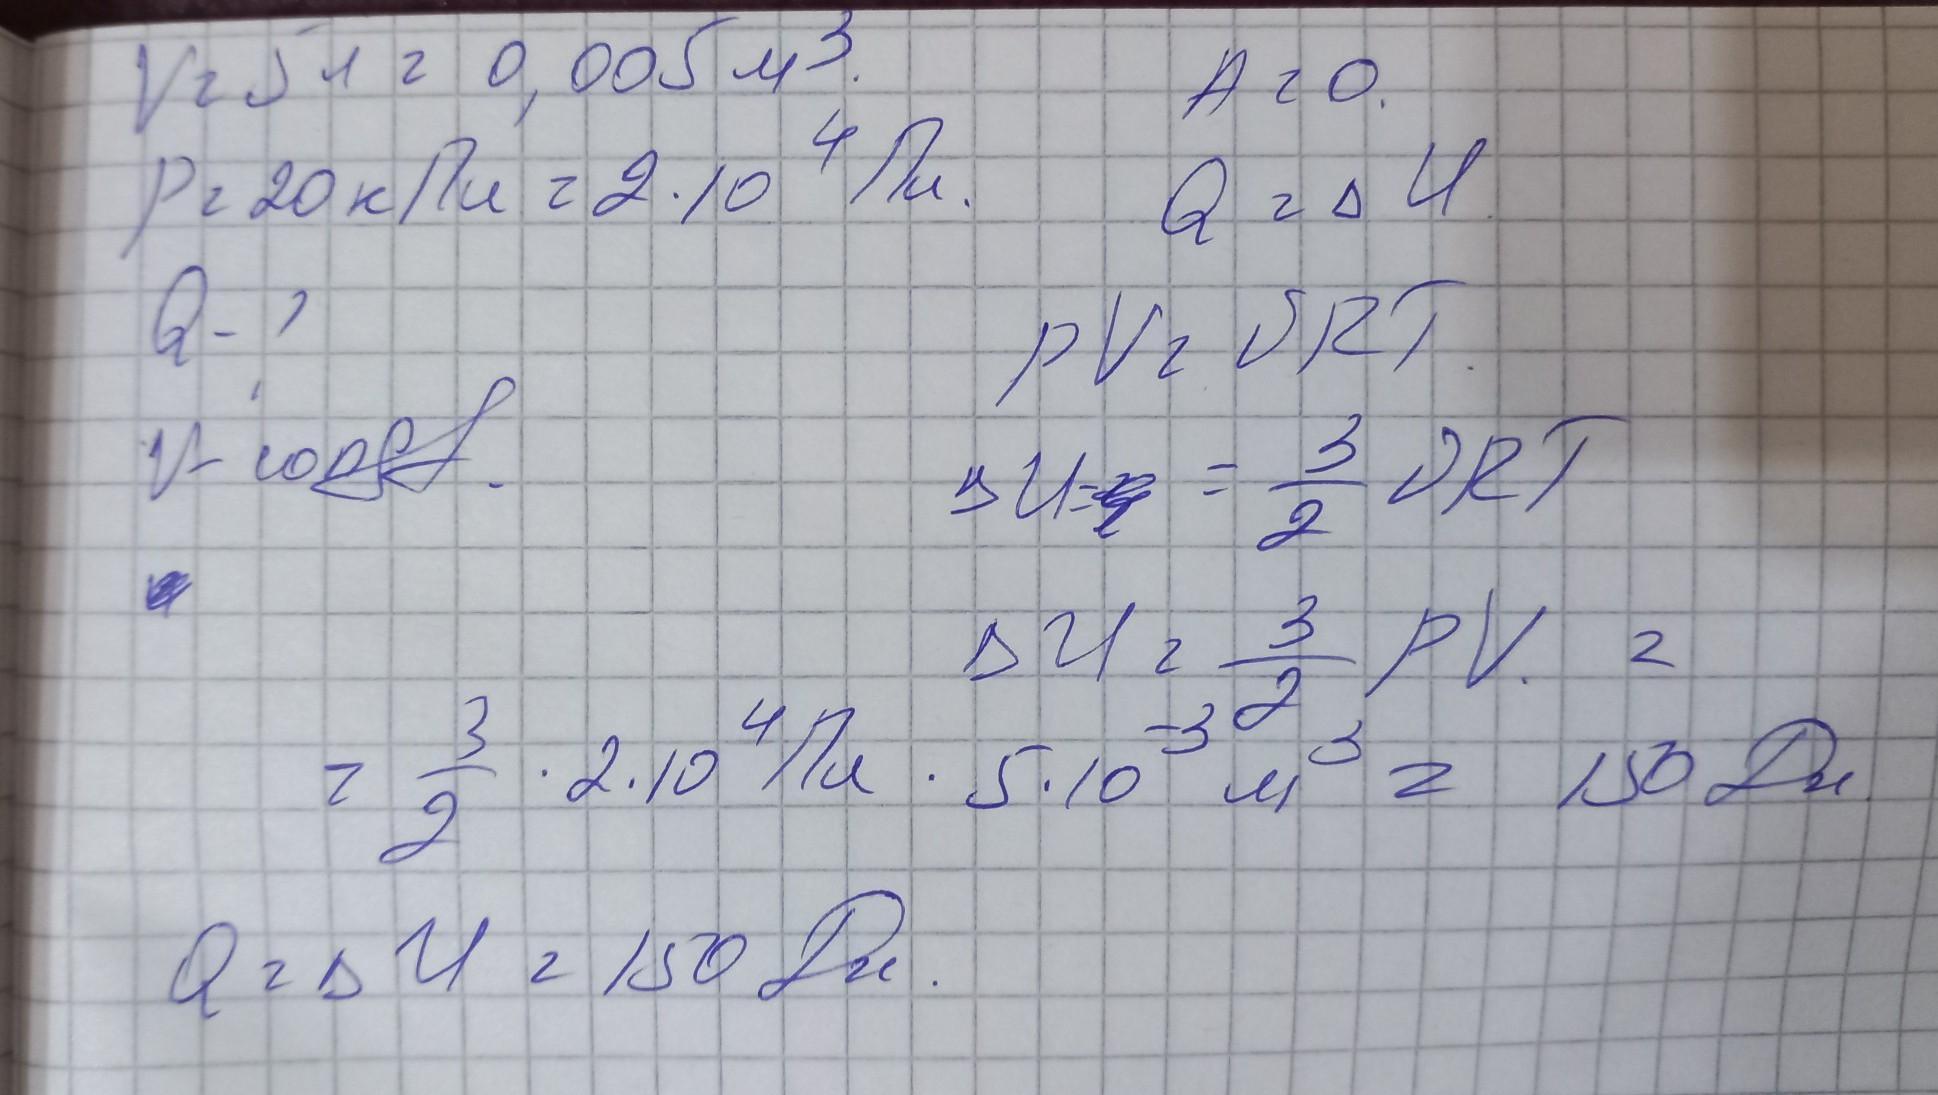 V = 5 л = 0,005 м³.
P = 20 кПа = 2·10⁴ Па.
Q - ?
V - const.
A = 0.
Q = ΔU.
pV = νRT.
ΔU = 3/2 νRT
ΔU = 3/2 PV. =
= 3/2 · 2·10⁴ Па · 5·10⁻³ м³ = 150 Дж.
Q = ΔU = 150 Дж.